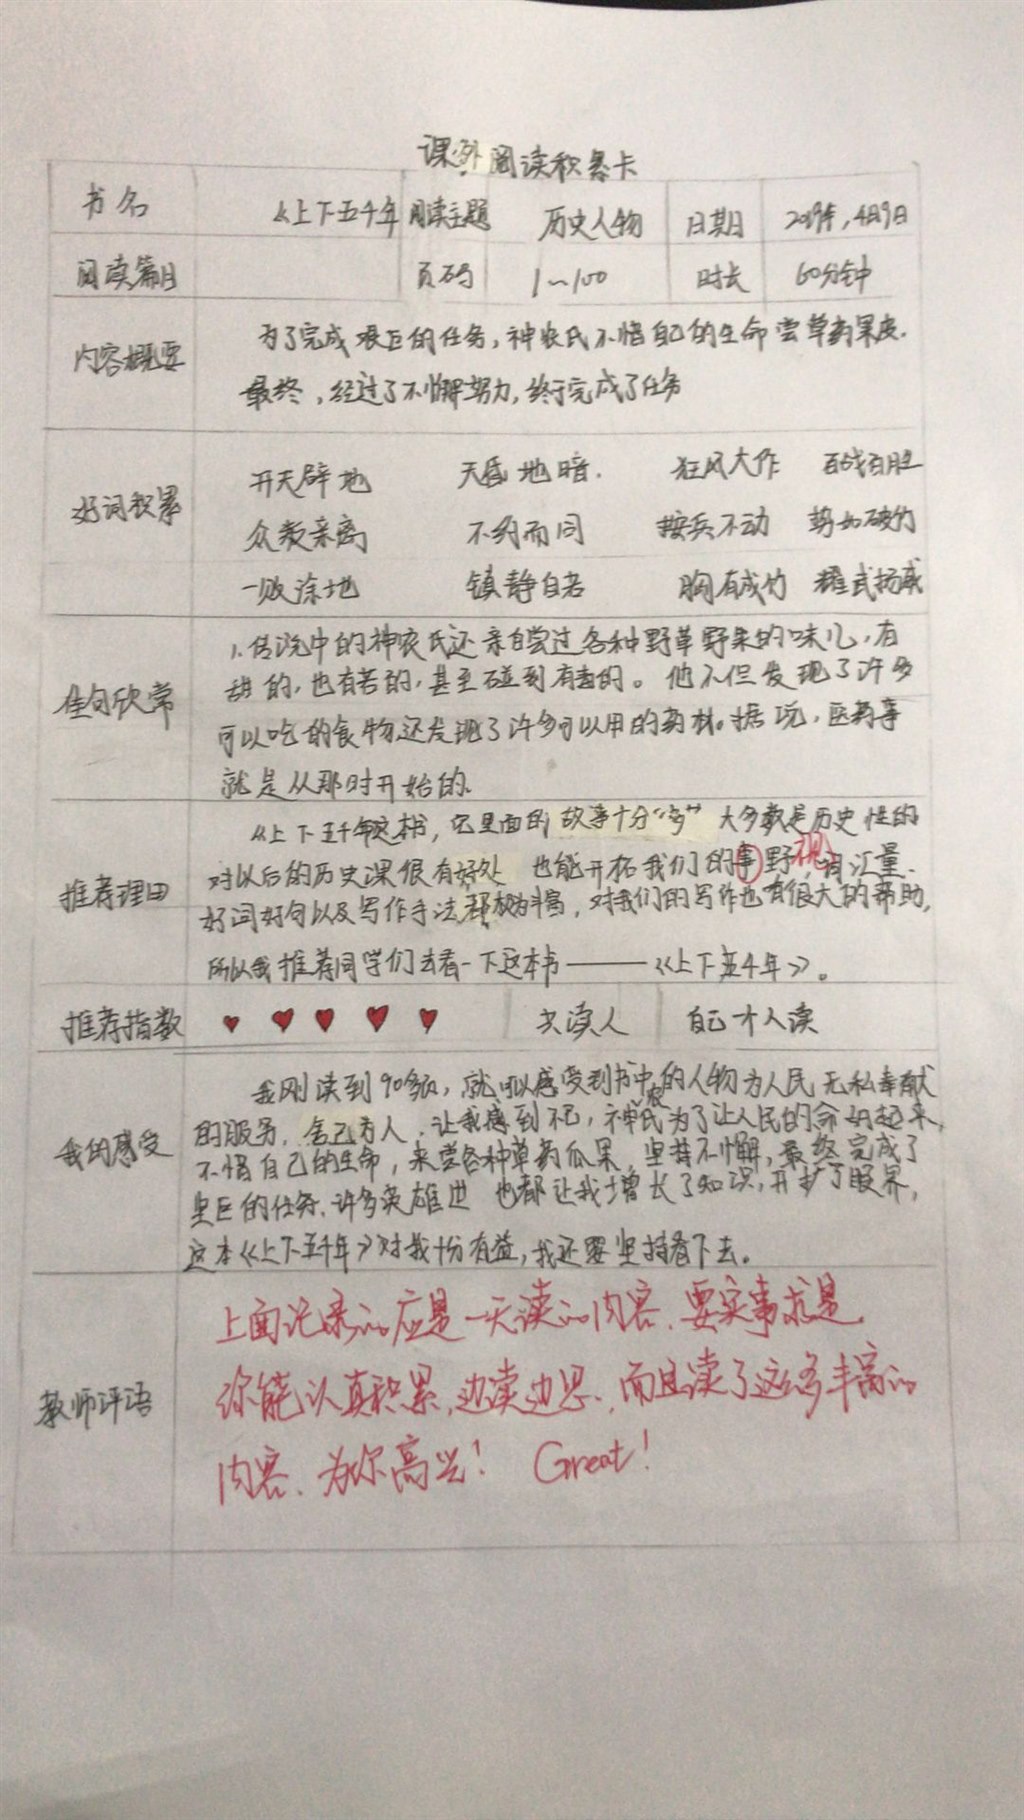 课外阅读积累卡
书名 《上下五千年 阅读主题 历史人物 日期 2019年,4月9日
阅读篇目 页码 1~100 时长 60分钟
内容概要 为了完成艰巨的任务,神农氏不惜自己的生命尝草药果皮.
最终,经过了不懈努力,终于完成了任务
好词积累 开天辟地 天昏地暗. 狂风大作 百战百胜
众叛亲离 不约而同 按兵不动 势如破竹
一败涂地 镇静自若 胸有成竹 耀武扬威
佳句欣常 1.传说中的神农氏还亲自尝过各种野草野果的味儿,有
甜的,也有苦的,甚至碰到有毒的。他不但发现了许多
可以吃的食物,还发现了许多可以用的药材。据说,医药事
就是从那时开始的.
推荐理由 《上下五千年》这本书,它里面的故事十分“多” 大多数是历史性的
对以后的历史课很有好处 也能开拓我们的事野,视 词汇量.
好词好句以及写作手法都极为丰富,对我们的写作也有很大的帮助,
所以我推荐同学们去看一下这本书———《上下五千年》。
推荐指数 ♥ ♥ ♥ ♥ ♥ 共读人 自己个人读
我的感受 我刚读到90多页,就可以感受到书中的人物为人民无私奉献
的服务.舍己为人.让我感到不已,神农氏为了让人民的命好起来,
不惜自己的生命,来尝各种草药瓜果,坚持不懈,最终完成了
坚巨的任务.许多英雄 也都让我增长了知识,开扩了眼界,
这本《上下五千年》对我十份有益,我还要坚持看下去。
教师评语 上面记录的应是一天读的内容.要实事求是.
你能认真积累,边读边思.而且读了这么多丰富的
内容.为你高兴! Great!